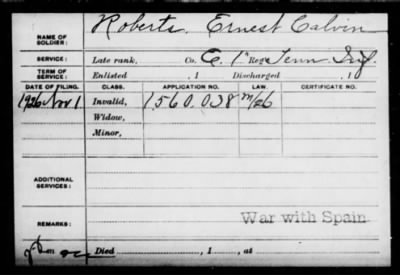 NAME OF SOLDIER: Roberts, Ernest Calvin
SERVICE: Late rank, Co. C. 1" Reg't Tenn Inf.
TERM OF SERVICE: Enlisted , 1 Discharged , 1
DATE OF FILING. CLASS. APPLICATION NO. LAW. CERTIFICATE NO.
1926 Nov 1 Invalid, 1560.038 m/26
Widow,
Minor,
ADDITIONAL SERVICES:
War with Spain
REMARKS:
Died , 1 , at